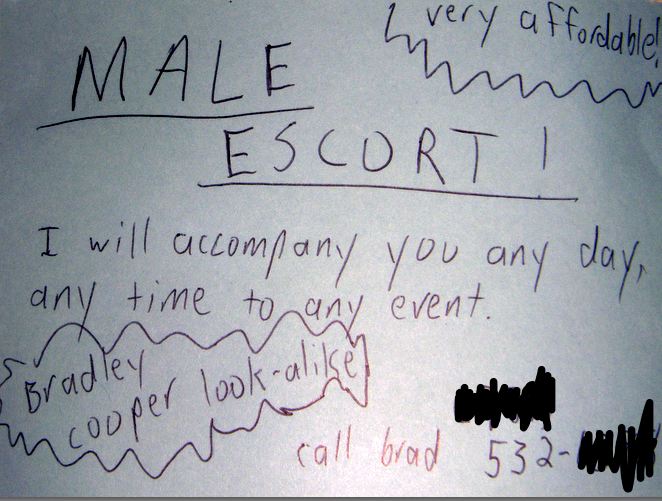 very affordable!
MALE
ESCORT!
I will accompany you any day,
any time to any event.
Bradley
cooper look-alike
call brad 532-